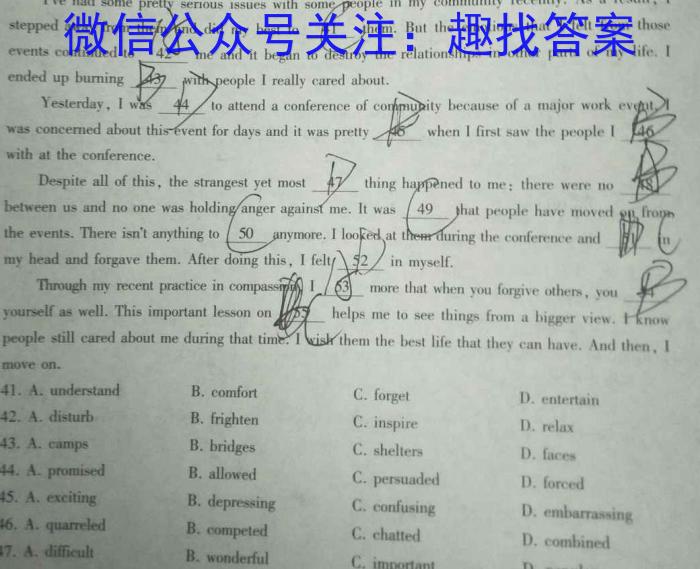 I've had some pretty serious issues with some people in my community recently. As a result, I
stepped them and did my best to 41 them. But the that I felt those
微信公众号关注：趣找答案
events continued to 42 me and it began to destroy the relationships in other parts of my life. I
ended up burning 43 with people I really cared about.
Yesterday, I was 44 to attend a conference of community because of a major work event. I
was concerned about this event for days and it was pretty 45 when I first saw the people I 46
with at the conference.
Despite all of this, the strangest yet most 47 thing happened to me: there were no 48
between us and no one was holding anger against me. It was 49 that people have moved on from
the events. There isn't anything to 50 anymore. I looked at them during the conference and 51 in
my head and forgave them. After doing this, I felt 52 in myself.
Through my recent practice in compassion, I 53 more that when you forgive others, you 54
yourself as well. This important lesson on 55 helps me to see things from a bigger view. I know
people still cared about me during that time. I wish them the best life that they can have. And then, I
move on.
41. A. understand B. comfort C. forget D. entertain
42. A. disturb B. frighten C. inspire D. relax
43. A. camps B. bridges C. shelters D. faces
44. A. promised B. allowed C. persuaded D. forced
45. A. exciting B. depressing C. confusing D. embarrassing
46. A. quarreled B. competed C. chatted D. combined
47. A. difficult B. wonderful C. important D.